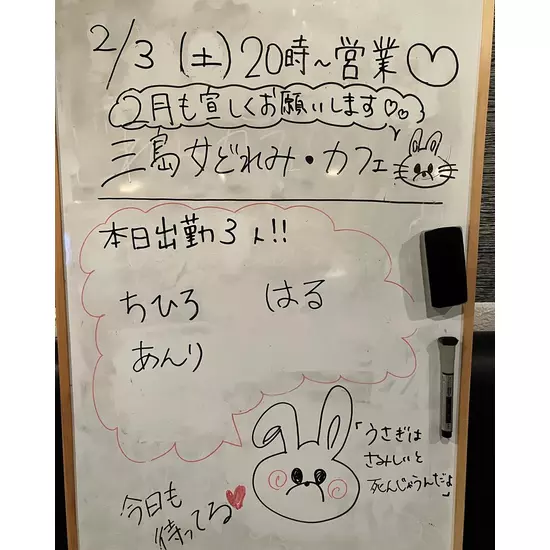 2/3(土)20時~営業♡
2月も宜しくお願いします♡♡
三島女どれみ・カフェ
本日出勤3人!!
ちひろ はる
あんり
「うさぎは
さみしいと
死んじゃうんだよ」
今日も
待ってる♥